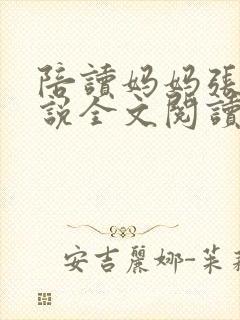 陪讀妈妈張
說全文閱讀
安吉麗娜-茱莉